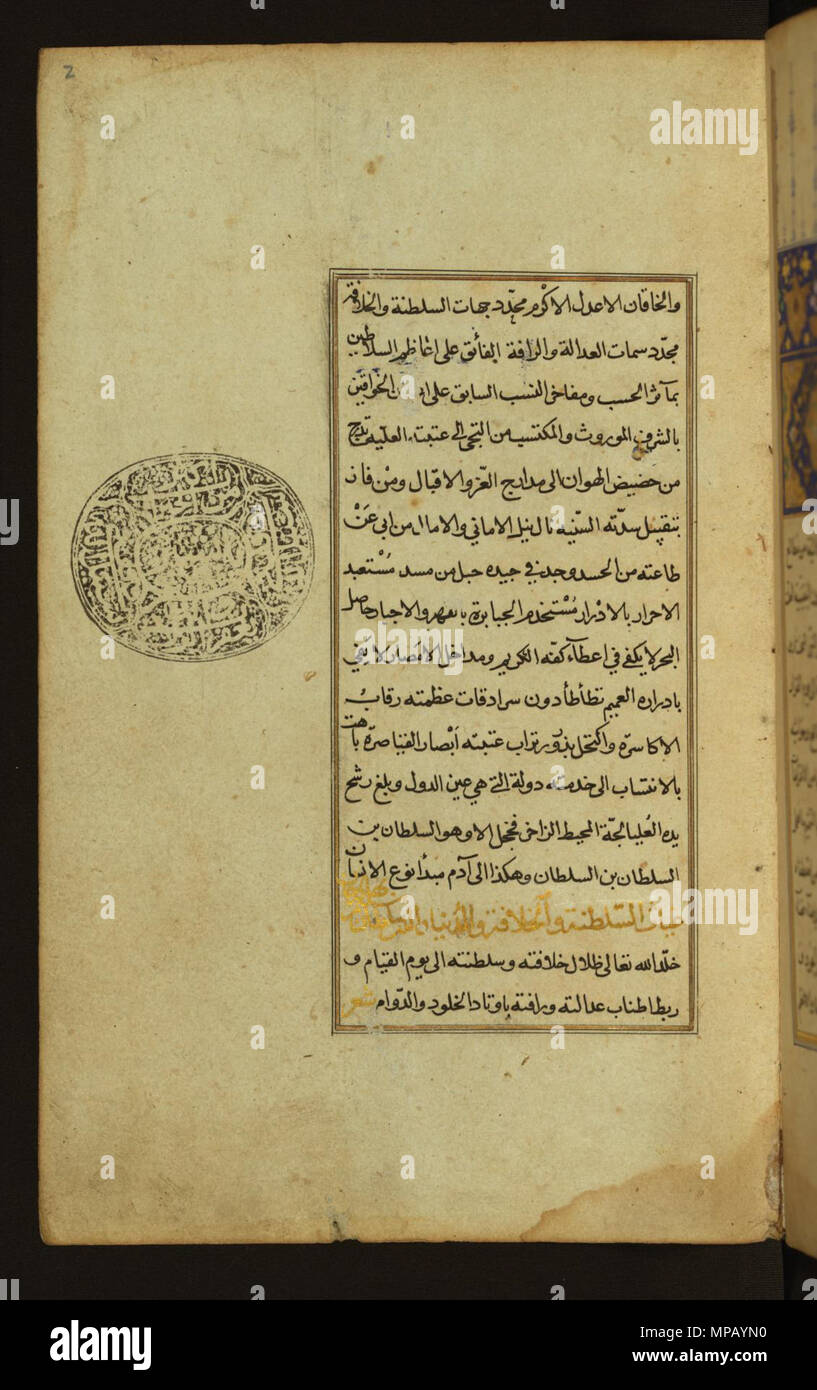 2
والخاقان الاعدل الاكرم مجدّد جهات السلطنة والخلافة
مجدّد سمات العدالة والرافة الفائق على اعاظم السلاطين
بمآثر الحسب ومفاخر النسب السابق على الخواقين
بالشرف الموروث والمكتسب من التجى الى عتبته العليه تدرج
من حضيض الهوان الى مدارج العزّ والاقبال ومن فاز
بتقبيل سدّته السّنية نال نيل الاماني والامال من ابى عَنْ
طاعته من الحسد وجد في جيده حبل من مسد مُسْتعبد
الاحرار بالادْرار مُسْتخدم الجبابرة حاصل
البحر لا يكفي في اعطاء كفّه الكريم ومداخل الاقطار لا يَفي
بادراره العميم تطأطأ دون سرادقات عظمته رقابُ
الاكاسرة واكتحل بذرور تراب عتبته اَبْصار القياصرة باهت
بالانتساب الى خدمته دولة التي هي عين الدول وبلغ رشح
يده العُليا لجّة المحيط الزاخر فخجل الا وهو السلطان بن
السلطان بن السلطان وهكذا الى آدم مبدأ نوع الانسان
غياث السّلطنة والخلافة والدنيا
خلّد الله تعالى ظلال خلافته وسلطنته الى يوم القيام و
ربط اطناب عدالته ورافته باوتاد الخلود والدّوام شعر
alamy
Image ID: MPAYN0
www.alamy.com